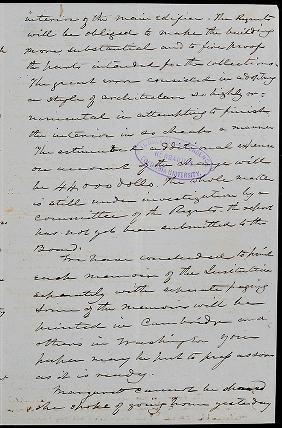 interior of the main edifice. The Regents
will be obliged to make the building
more substantial and to fire proof
the parts intended for the collections.
The great error consisted in adopting
a style of architecture so highly or=
namental in attempting to finish
the interior in so cheap a manner
The estimated additional expense
on account of the change will
be 44000 dolls. The whole matter
is still under investigation by a
committee of the Regents. The report
has not yet been submitted to the
Board.
We have concluded to print
each memoir of the Institution
separately with separate paging
some of the memoirs will be
printed in Cambridge and
others in Washington your
paper may be put to press as soon
as it is ready.
Margaret cannot be
she spoke of going home yesterday
UNIVERSITY